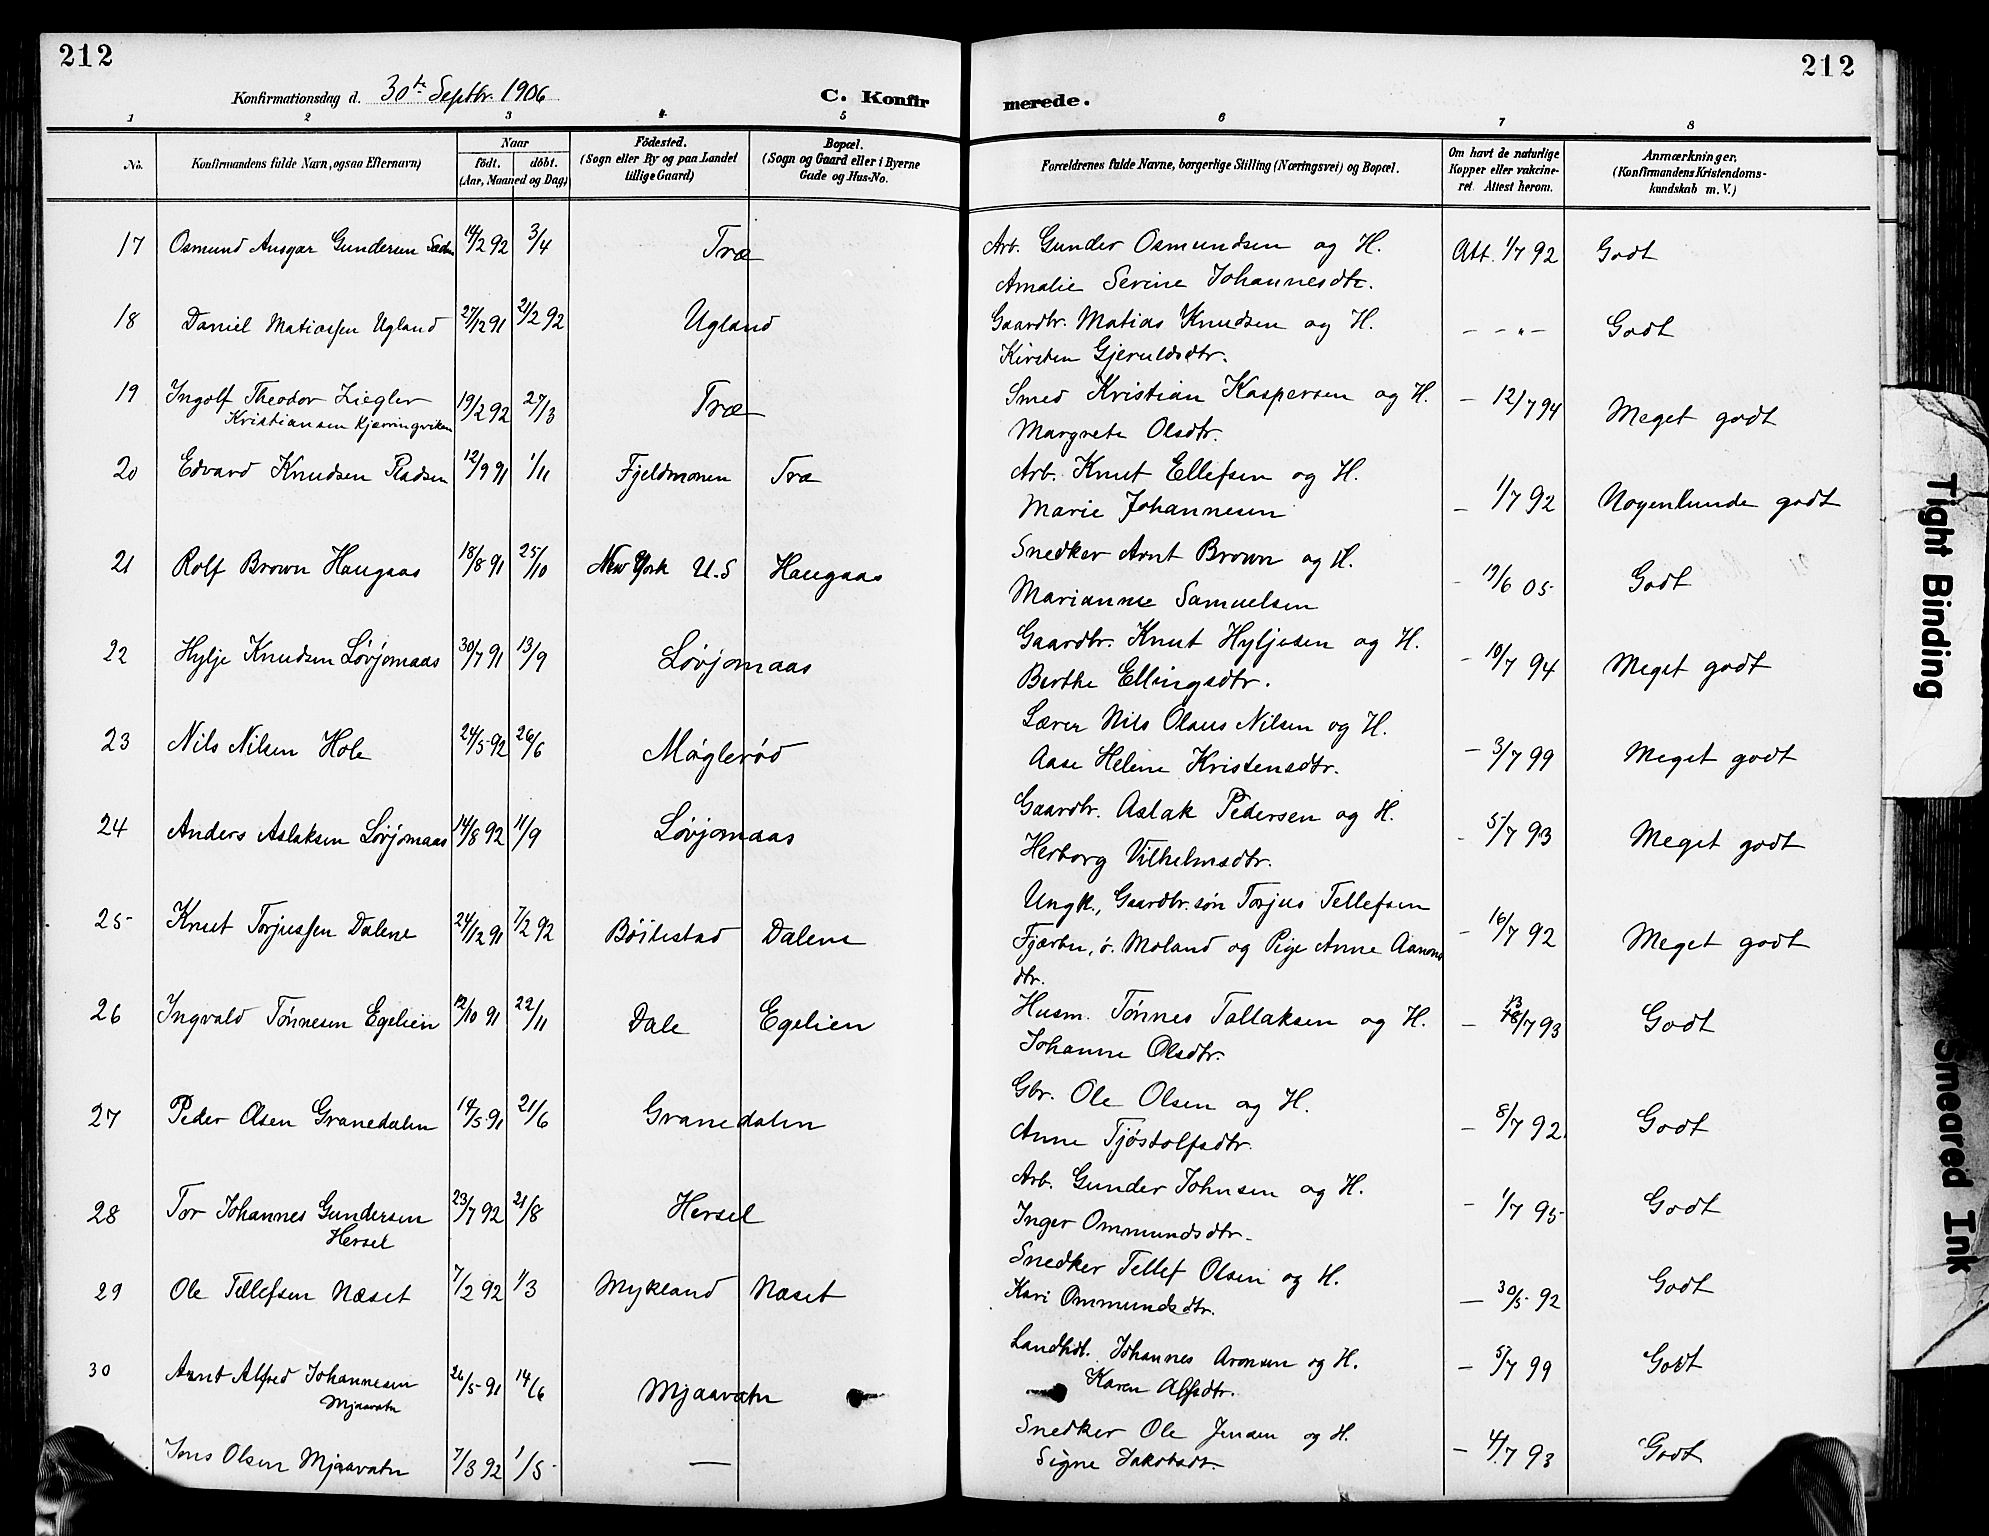 212
212
Konfirmationsdag d. 30te Septbr. 1906
C. Konfirmerede.
1 2 3 4 5 6 7 8
No.
Konfirmandens fulde Navn, ogsaa Efternavn)
Naar
födt. döbt.
(Aar, Maaned og Dag)
Födested.
(Sogn eller By og paa Landet
tillige Gaard)
Bopæl.
(Sogn og Gaard eller i Byerne
Gade og Hus-No.
Forældrenes fulde Navne, borgerlige Stilling (Næringsvei) og Bopæl.
Om havt de naturlige
Kopper eller vakcine-
ret. Attest herom.
Anmærkninger.
(Konfirmandens Kristendoms-
kundskab m. V.)
17 Osmund Ansgar Gundersen 14/2 92 3/4 Træ Arb. Gunder Osmundsen og H. Att. 1/7 92 Godt
Amalie Serine Johannesdtr.
18 Daniel Matiassen Ugland 27/12 91 21/2 92 Ugland Gaardbr. Matias Knudsen og H. – – " – Godt
Kirsten Gjeruldsdtr.
19 Ingolf Theodor Ziegler 19/2 92 27/3 Træ Smed Kristian Kaspersen og H. – 12/7 94 Meget godt
Kristiansen Kjerringviken Margrete Olsdtr.
20 Edvard Knudsen Pladsen 12/9 91 1/11 Fjeldmonen Træ Arb. Knut Ellefsen og H. – 1/7 92 Nogenlunde godt
Marie Johannesen
21 Rolf Brown Haugaas 18/8 91 25/10 New York U.S Haugaas Snedker Arnt Brown og H. – 19/6 05 Godt
Marianne Samuelsen
22 Hylje Knudsen Løvjomaas 30/7 91 13/9 Løvjomaas Gaardbr. Knut Hyljesen og H. – 10/7 94 Meget godt
Berthe Ellingsdtr.
23 Nils Nilsen Hole 24/5 92 26/6 Møglerød Lærer Nils Olaus Nilsen og H. – 3/7 99 Meget godt
Aase Helene Kristensdtr.
24 Anders Aslaksen Løvjomaas 14/8 92 11/9 Løvjomaas Gaardbr. Aslak Pedersen og H. – 5/7 93 Meget godt
Herborg Vilhelmsdtr.
25 Knut Torjussen Dalene 24/12 91 7/2 92 Bøilestad Dalene Ungk., Gaardbr.søn Torjus Tellefsen – 16/7 92 Meget godt
Fjærbu, ø. Moland og Pige Anne Aanons
dtr.
26 Ingvald Tønnesen Egelien 12/10 91 22/11 Dale Egelien Husm. Tønnes Tallaksen og H. – 13/7 93 Godt
Johanne Olsdtr.
27 Peder Olsen Granedalen 14/5 91 21/6 Granedalen Gbr. Ole Olsen og H. – 8/7 92 Godt
Anne Tjøstolfsdtr.
28 Tor Johannes Gundersen 23/7 92 21/8 Hersel Arb. Gunder Johnsen og H. – 1/7 95 Godt
Hersel Inger Ommundsdtr.
29 Ole Tellefsen Næset 7/2 92 1/3 Mykland Næset Snedker Tellef Olsen og H. – 30/5 92 Godt
Kari Ommundsdtr.
30 Arnt Alfred Johannesen 26/5 91 14/6 Mjaavatn Landhdl. Johannes Aronsen og H. – 5/7 99 Godt
Mjaavatn Karen Alfsdtr.
Jens Olsen Mjaavatn 7/3 92 1/5 — Snedker Ole Jensen og H. – 4/7 93 Godt
Signe Jakobsdt.
Tight Binding
Smeared Ink